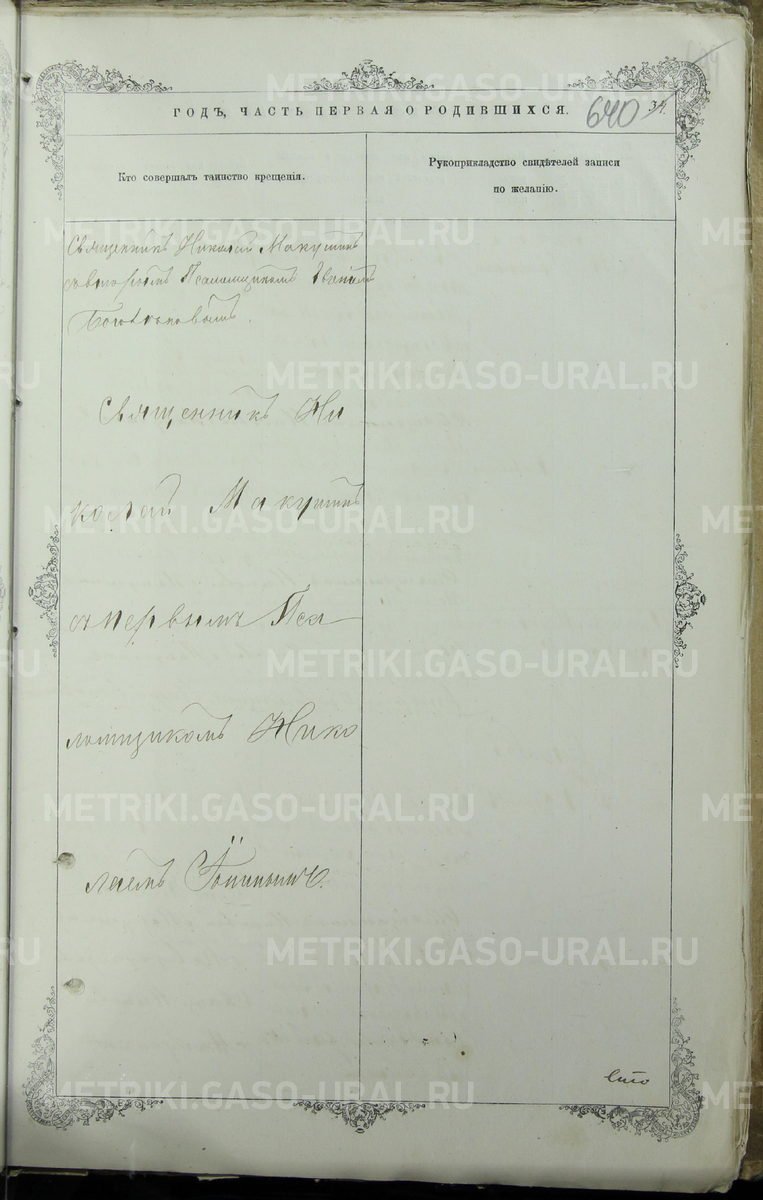 640
34.
ГОДЪ, ЧАСТЬ ПЕРВАЯ О РОДИВШИХСЯ.
Кто совершалъ таинство крещенія.
Рукоприкладство свидѣтелей записи
по желанію.
Священникъ Николай Макушинъ
съ вторымъ Псаломщикомъ
Священникъ Ни
колай Макушинъ
съ первымъ Пса
ломщикомъ Нико
лаемъ
METRIKI.GASO-URAL.RU